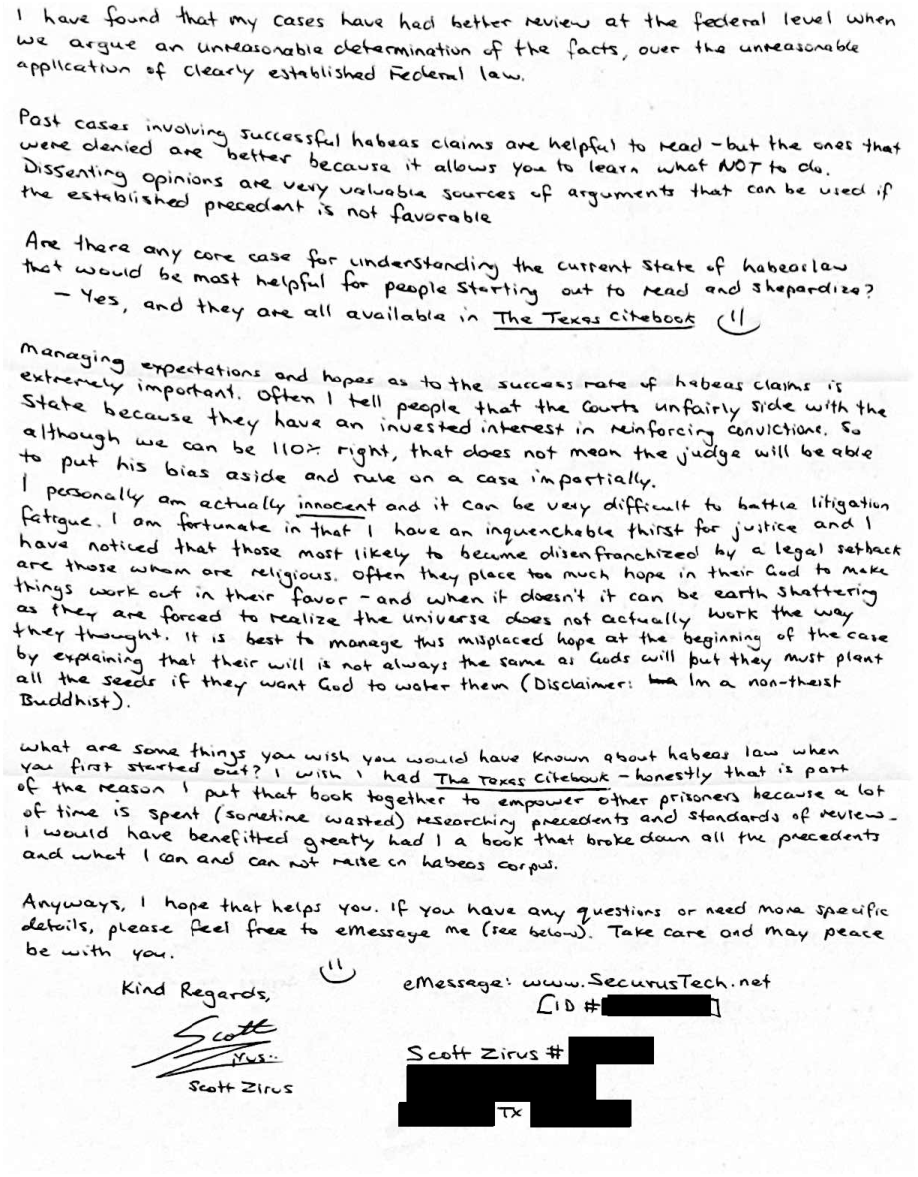 I have found that my cases have had better review at the federal level when
we argue an unreasonable determination of the facts, over the unreasonable
application of clearly established Federal law.
Past cases involving successful habeas claims are helpful to read - but the ones that
were denied are better because it allows you to learn what NOT to do.
Dissenting opinions are very valuable sources of arguments that can be used if
the established precedent is not favorable
Are there any core case for understanding the current state of habeas law
that would be most helpful for people starting out to read and shepardize?
- Yes, and they are all available in The Texas Citebook
Managing expectations and hopes as to the success rate of habeas claims is
extremely important. Often I tell people that the Courts unfairly side with the
State because they have an invested interest in reinforcing convictions. So
although we can be 110% right, that does not mean the judge will be able
to put his bias aside and rule on a case impartially.
I personally am actually innocent and it can be very difficult to battle litigation
fatigue. I am fortunate in that I have an inquenchable thirst for justice and I
have noticed that those most likely to become disenfranchized by a legal setback
are those whom are religious. Often they place too much hope in their God to make
things work out in their favor - and when it doesn't it can be earth shattering
as they are forced to realize the universe does not actually work the way
they thought. It is best to manage this misplaced hope at the beginning of the case
by explaining that their will is not always the same as Gods will but they must plant
all the seeds if they want God to water them (Disclaimer: Im a non-theist
Buddhist).
What are some things you wish you would have known about habeas law when
you first started out? I wish I had The Texas Citebook - honestly that is part
of the reason I put that book together to empower other prisoners because a lot
of time is spent (sometime wasted) researching precedents and standards of review -
I would have benefitted greatly had I a book that broke down all the precedents
and what I can and can not raise on habeas corpus.
Anyways, I hope that helps you. If you have any questions or need more specific
details, please feel free to eMessage me (see below). Take care and may peace
be with you.
Kind Regards,
Scott
Zirus
Scott Zirus
eMessage: www.SecurusTech.net
[ID #
]
Scott Zirus #
TX